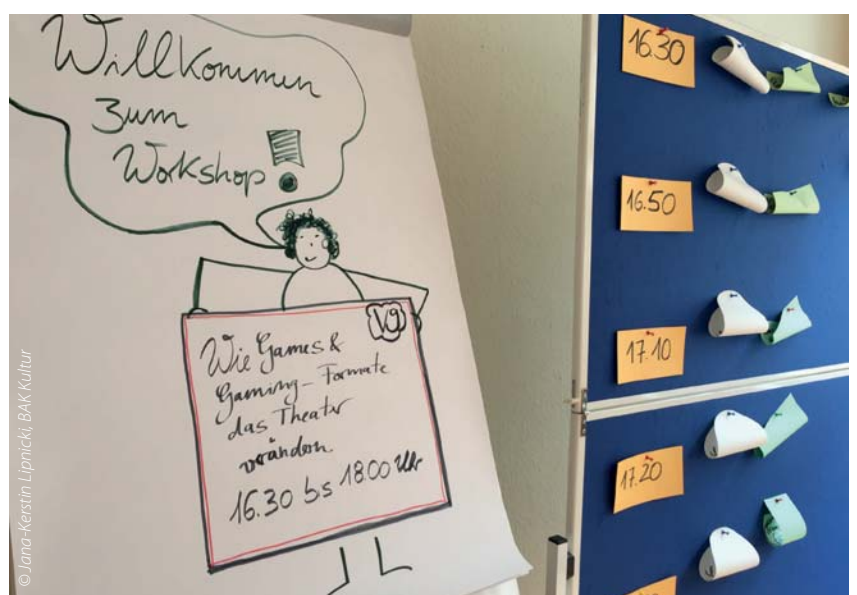 Willkommen
zum
Workshop!
V9
Wie Games &
Gaming-Formate
das Theater
verändern
16.30 bis 18.00 Uhr
16.30
16.50
17.10
17.20
© Jana-Kerstin Lipnicki, BAK Kultur